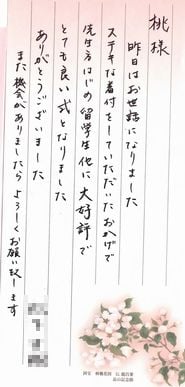 桃様
昨日はお世話になりました
ステキな着付をしていただいたおかげで
先生方はじめ留学生他に大好評で
とても良い式となりました
ありがとうございました
また機会がありましたらよろしくお願い致します